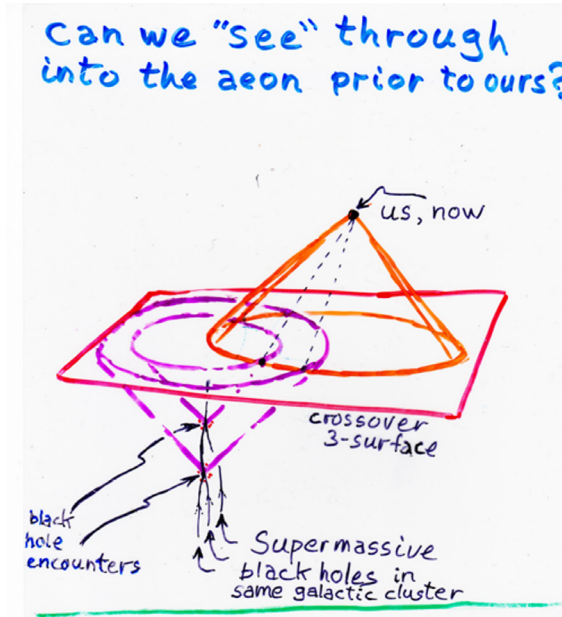 Can we "see" through
into the aeon prior to ours?
us, now
crossover
3-surface
black
hole
encounters
Supermassive
black holes in
same galactic cluster